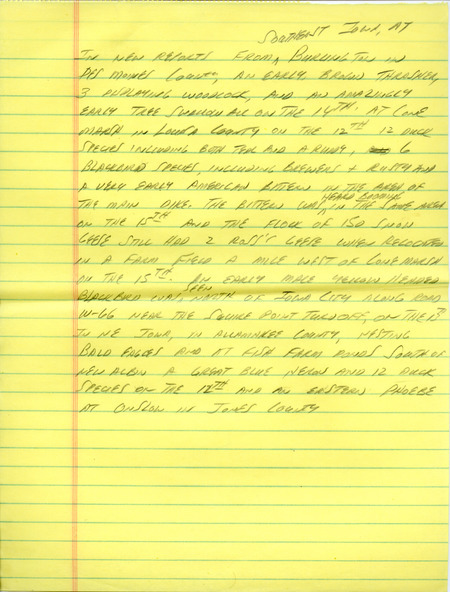 Southeast Iowa, At
In new reports from, Burlington in
Des Moines County, an early Brown Thrasher,
3 displaying woodcock, and an amazingly
early Tree Swallow all on the 14th. At Cone
Marsh in Louisa County on the 12th 12 duck
species including both Teal and a Ruddy, 6
Blackbird species, including Brewers + Rusty and
a very early American Bittern in the area of
the main dike. The Bittern was heard booming in the same area
on the 15th and the flock of 150 Snow
Geese still had 2 Ross's Geese when relocated
in a farm field a mile west of Cone Marsh
on the 15th. An early male Yellow Headed
Blackbird was seen north of Iowa City along road
W-66 near the Squire Point turnoff, on the 13th
In NE Iowa, in Allamakee County, nesting
Bald Eagles and at Fish Farm ponds south of
New Albin a Great Blue Heron and 12 duck
species on the 12th and an Eastern Phoebe
at Onslow in Jones County